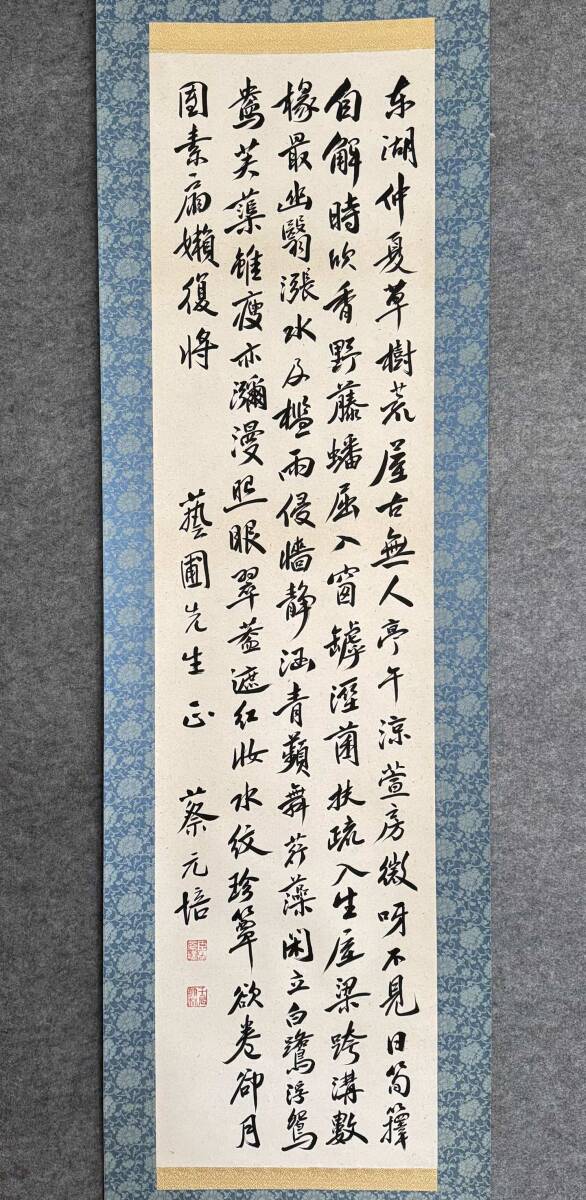 东湖仲夏草樹荒屋古無人亭午涼萱房微呀不見日筍籜
自解時吹香野藤蟠屈入窗罅溼菌扶疏入生屋梁跨溝數
椽最幽翳漲水及檻雨侵牆静涵青蘋舞荇藻閑立白鷺浮鴛
鴦芙蕖雖瘦亦瀰漫照眼翠蓋遮紅妝水紋珍簟欲卷卻月
團素扇嬾復将
藝圃先生正
蔡元培